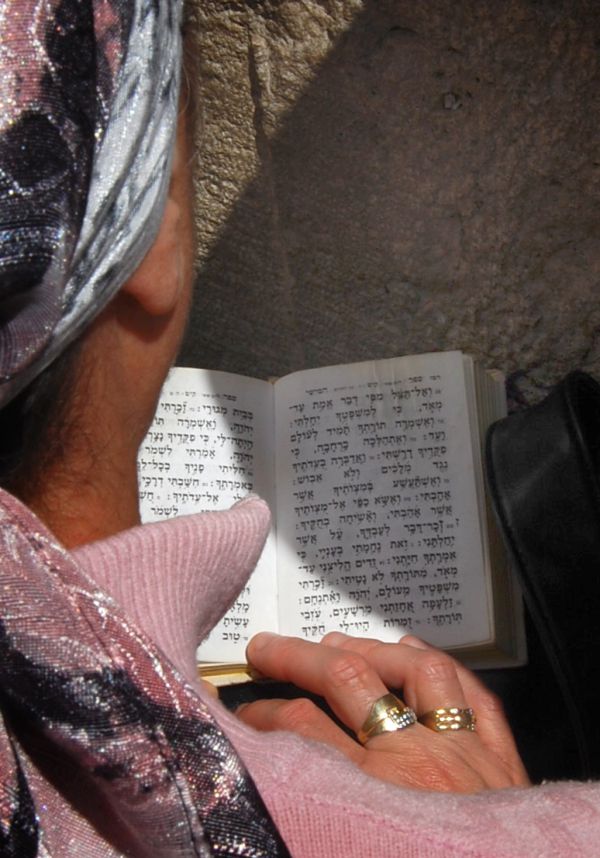 ספר קיט
וְאַל־תַּצֵּל מִפִּי דְבַר אֱמֶת עַד־
מְאֹד, כִּי לְמִשְׁפָּטֶךָ יִחָלְתִּי:
וְאֶשְׁמְרָה תוֹרָתְךָ תָמִיד לְעוֹלָם
וָעֶד: וְאֶתְהַלְּכָה בָרְחָבָה, כִּי
פִקֻּדֶיךָ דָרָשְׁתִּי: וַאֲדַבְּרָה בְעֵדֹתֶיךָ
נֶגֶד מְלָכִים וְלֹא אֵבוֹשׁ:
וְאֶשְׁתַּעֲשַׁע בְּמִצְוֹתֶיךָ אֲשֶׁר
אָהָבְתִּי: וְאֶשָּׂא כַפַּי אֶל־מִצְוֹתֶיךָ
אֲשֶׁר אָהָבְתִּי, וְאָשִׂיחָה בְחֻקֶּיךָ:
ז זְכָר־דָּבָר לְעַבְדֶּךָ, עַל אֲשֶׁר
יִחַלְתָּנִי: זֹאת נֶחָמָתִי בְעָנְיִי, כִּי
אִמְרָתְךָ חִיָּתְנִי: זֵדִים הֱלִיצֻנִי עַד־
מְאֹד, מִתּוֹרָתְךָ לֹא נָטִיתִי: זָכַרְתִּי
מִשְׁפָּטֶיךָ מֵעוֹלָם, יְהוָה וָאֶתְנֶחָם:
זַלְעָפָה אֲחָזַתְנִי מֵרְשָׁעִים, עֹזְבֵי
תּוֹרָתֶךָ: זְמִרוֹת הָיוּ־לִי חֻקֶּיךָ
ספר קיט
בְּבֵית מְגוּרָי: זָכַרְתִּי
יְהוָה, וָאֶשְׁמְרָה תּוֹרָתֶךָ:
הָיְתָה־לִּי, כִּי פִקֻּדֶיךָ נָצָרְתִּי
יְהוָה, אָמַרְתִּי לִשְׁמֹר
חִלִּיתִי פָנֶיךָ בְכָל־לֵב
חִשַּׁבְתִּי דְרָכָי
אֶל־עֵדֹתֶיךָ: חַשְׁתִּי
לִשְׁמֹר
עָשִׂיתָ
טוּב